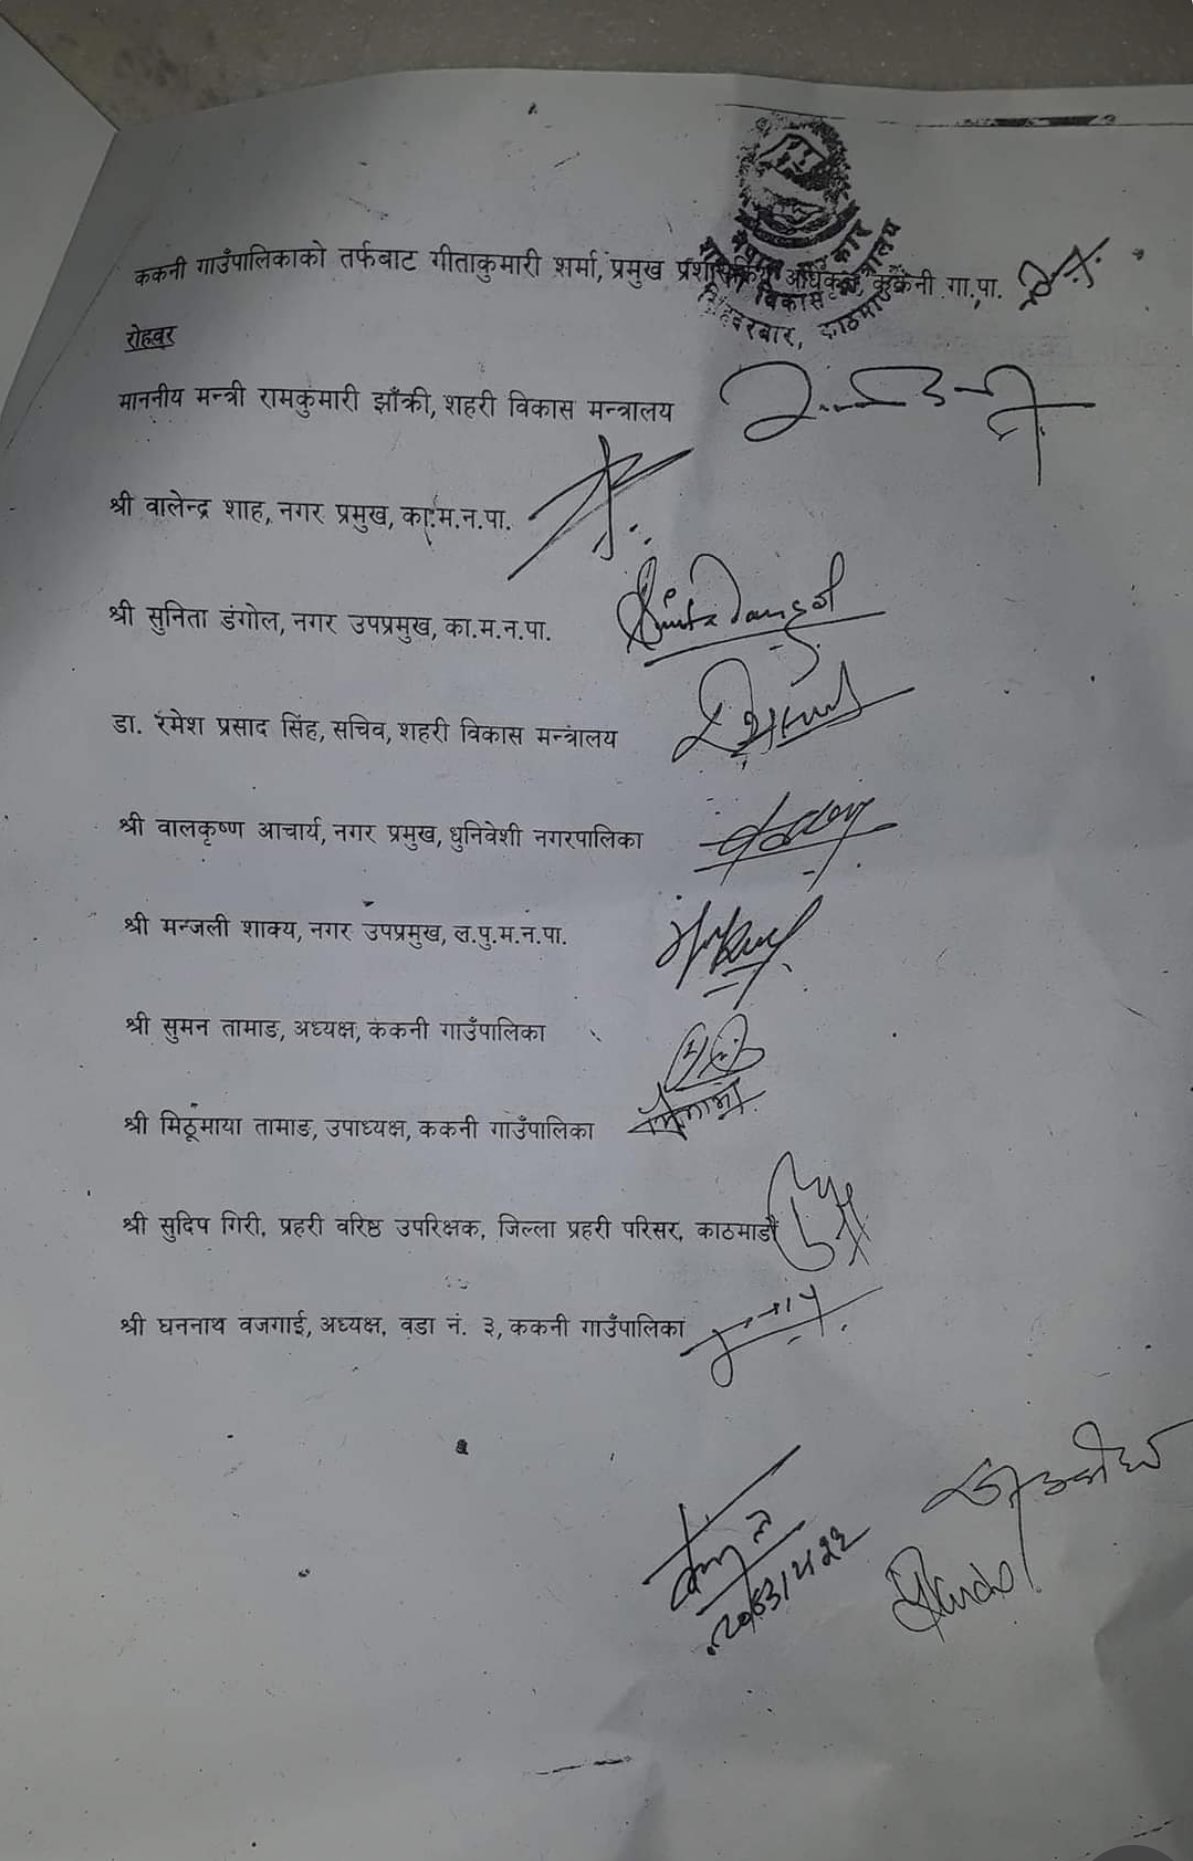 नेपाल सरकार
शहरी विकास मन्त्रालय
सिंहदरबार, काठमाडौं
ककनी गाउँपालिकाको तर्फबाट गीताकुमारी शर्मा, प्रमुख प्रशासकिय अधिकृत, ककनी गा.पा.
रोहवर
माननीय मन्त्री रामकुमारी झाँक्री, शहरी विकास मन्त्रालय
श्री वालेन्द्र शाह, नगर प्रमुख, का.म.न.पा.
श्री सुनिता डंगोल, नगर उपप्रमुख, का.म.न.पा.
डा. रमेश प्रसाद सिंह, सचिव, शहरी विकास मन्त्रालय
श्री वालकृष्ण आचार्य, नगर प्रमुख, धुनिवेशी नगरपालिका
श्री मन्जली शाक्य, नगर उपप्रमुख, ल.पु.म.न.पा.
श्री सुमन तामाङ, अध्यक्ष, ककनी गाउँपालिका
श्री मिठूमाया तामाङ, उपाध्यक्ष, ककनी गाउँपालिका
श्री सुदिप गिरी, प्रहरी वरिष्ठ उपरिक्षक, जिल्ला प्रहरी परिसर, काठमाडौं
श्री घननाथ वजगाई, अध्यक्ष, वडा नं. ३, ककनी गाउँपालिका